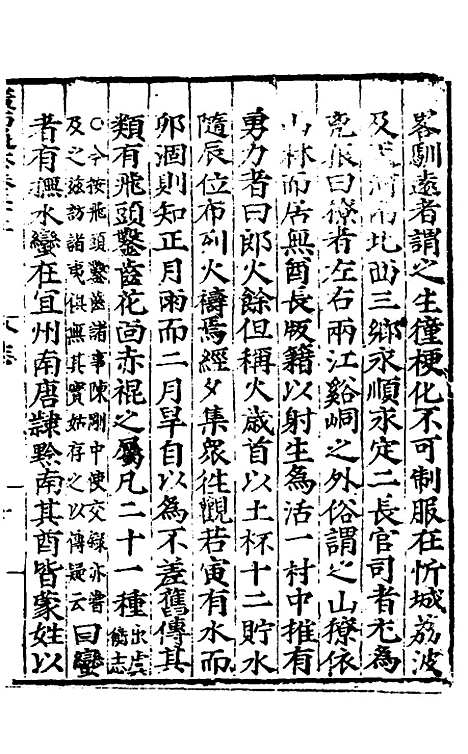 畧馴遠者謂之生獞梗化不可制服在忻城荔波
及河南北西三鄉永順永定二長官司者尤為
兇狠曰獠者左右兩江谿峒之外俗謂之山獠依
山林而居無酋長版籍以射生為活一村中推有
勇力者曰郎火餘但稱火歲首以土杯十二貯水
隨辰位布列火禱焉經夕集衆徃觀若寅有水而
卯涸則知正月雨而二月旱自以為不差舊傳其
類有飛頭鑿齒花面赤裩之屬凡二十一種出虞衡志
○今按飛頭鑿齒諸事陳剛中使交錄亦嘗
及之兹訪諸夷俱無其實姑存之以傳疑云曰蠻
者有撫水蠻在宜州南唐隸黔南其酋皆蒙姓以